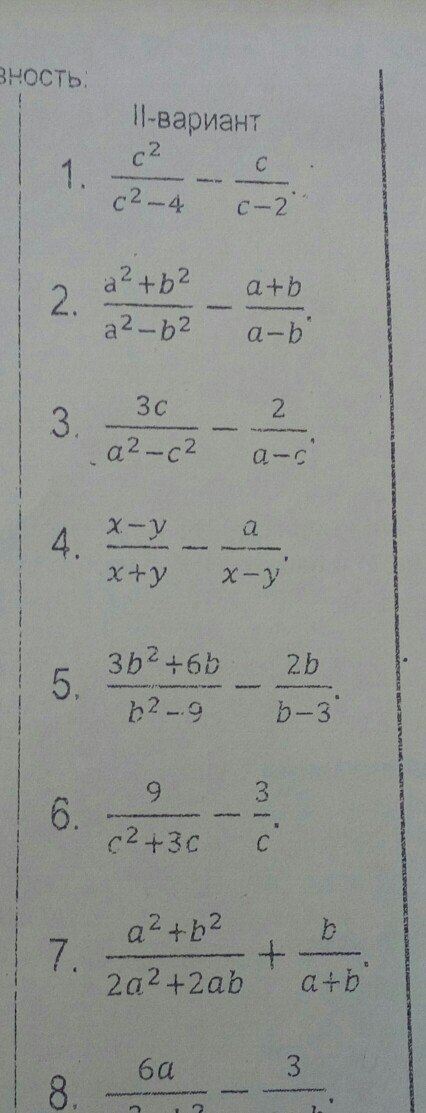 вность:
II-вариант
1. \frac{c^2}{c^2-4} - \frac{c}{c-2}.
2. \frac{a^2+b^2}{a^2-b^2} - \frac{a+b}{a-b}.
3. \frac{3c}{a^2-c^2} - \frac{2}{a-c}.
4. \frac{x-y}{x+y} - \frac{a}{x-y}.
5. \frac{3b^2+6b}{b^2-9} - \frac{2b}{b-3}.
6. \frac{9}{c^2+3c} - \frac{3}{c}.
7. \frac{a^2+b^2}{2a^2+2ab} + \frac{b}{a+b}.
8. 6a - 3